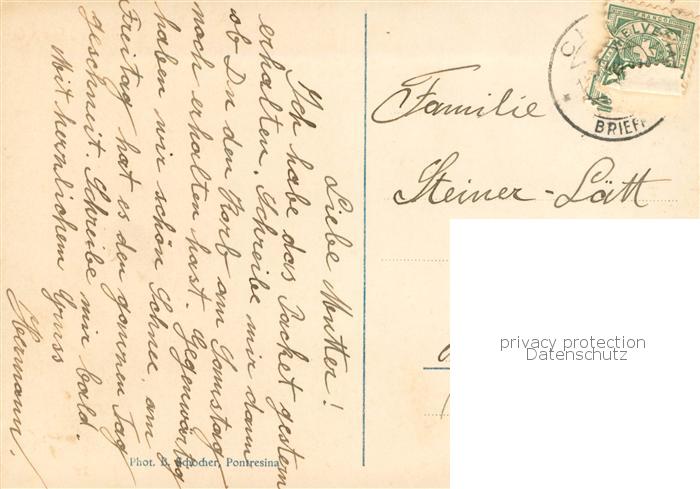 Liebe Mutter!
Ich habe das Packet gestern
erhalten. Schreibe mir dann
ob Du den Korb am Samstag
noch erhalten hast. Gegenwärtig
haben wir schön Schnee, am
Freitag hat es den ganzen Tag
geschneit. Schreibe mir bald.
Mit herzlichem Gruss
Hermann.
Familie
Steiner-Lätt
FRANCO
HELVETIA
BRIEF
privacy protection
Datenschutz
Phot. B. Schocher, Pontresina